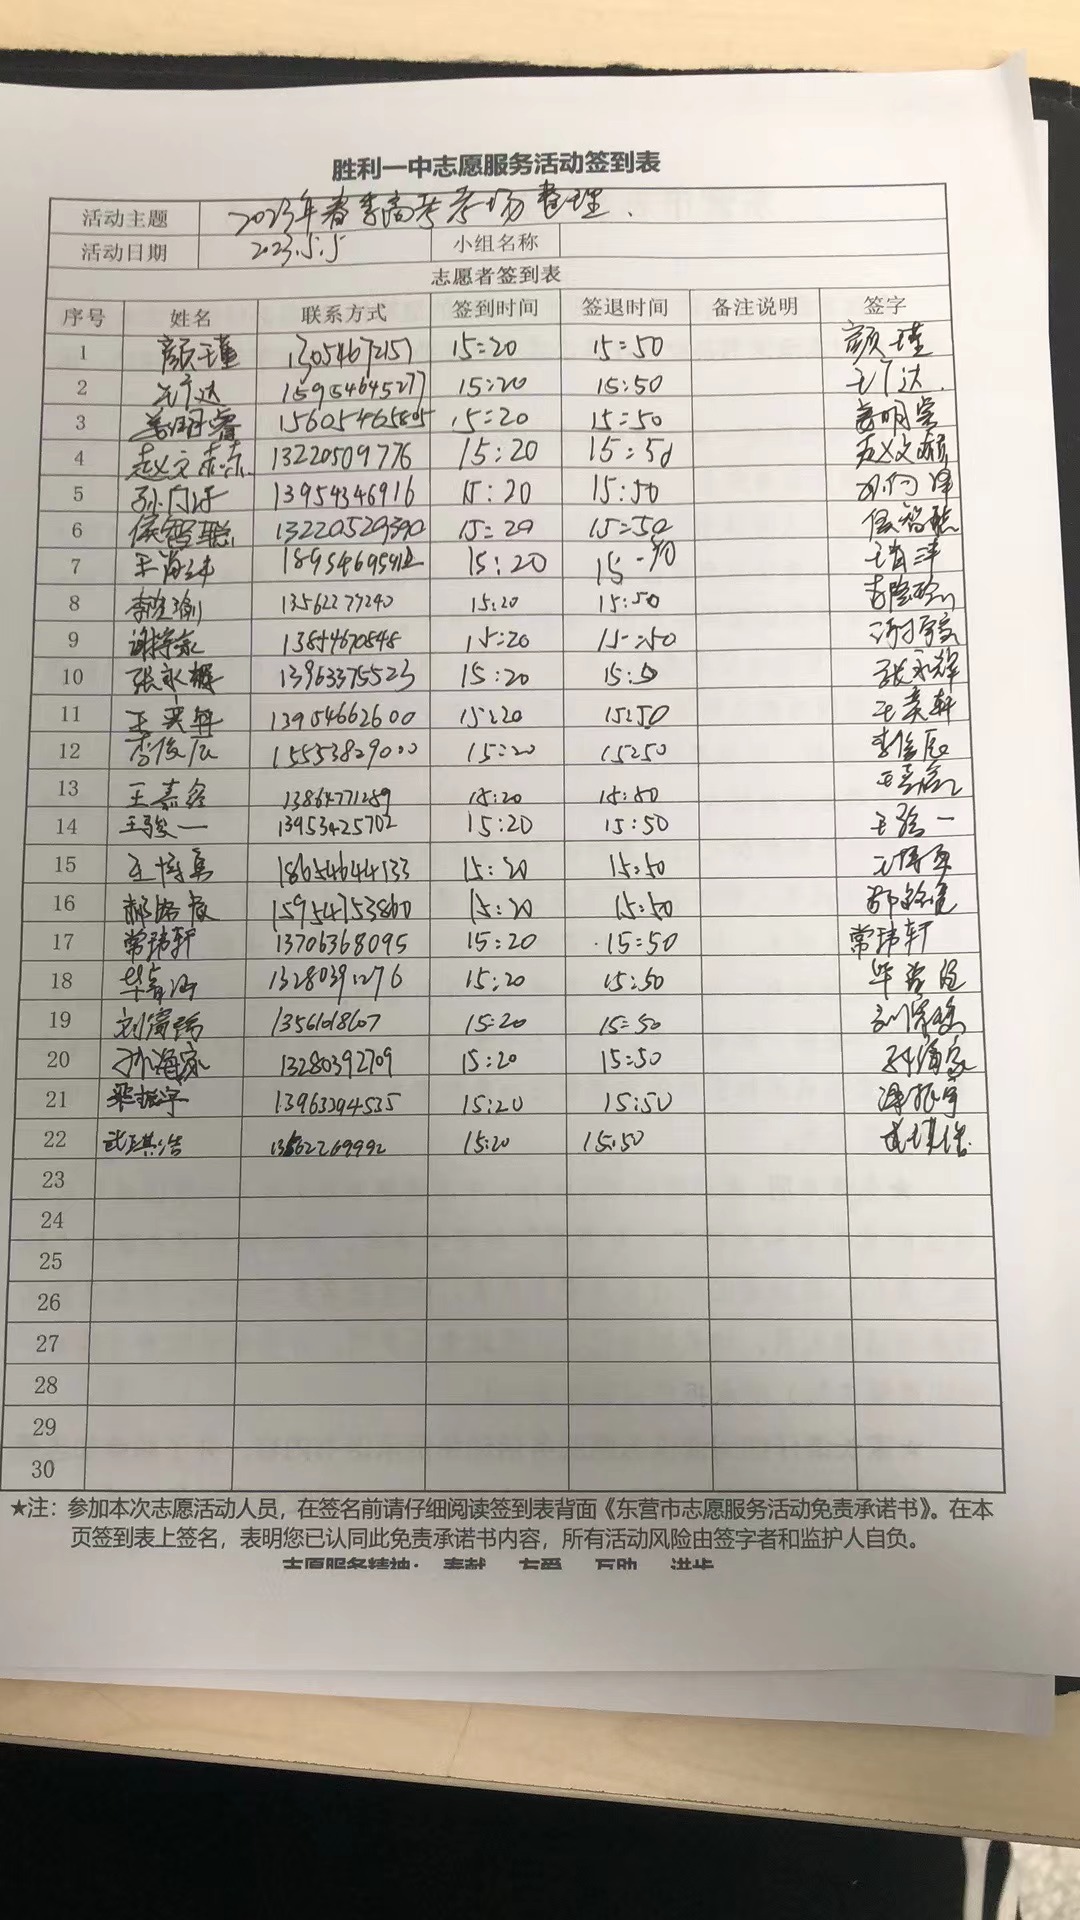 胜利一中志愿服务活动签到表
活动主题 2023年春季高考考场整理.
活动日期 2023.5.5 小组名称
志愿者签到表
序号 姓名 联系方式 签到时间 签退时间 备注说明 签字
1 颜瑾 13054672157 15:20 15:50 颜瑾
2 王广达 15954645277 15:20 15:50 王广达.
3 15605465805 15:20 15:50
4 13220509776 15:20 15:50
5 13954346916 15:20 15:50
6 侯智聪 13220529390 15:20 15:50 侯智聪
7 15:20
8 13562277240 15:20 15:50
9 13854670848 15:20 15:50
10 张永辉 13963375523 15:20 15:50 张永辉
11 王奕轩 13954662600 15:20 15:50 王奕轩
12 李俊辰 15553829000 15:20 15:50 李俊辰
13 王嘉鑫 13864771289 15:20 15:50
14 王骏一 13953425702 15:20 15:50 王骏一
15 18654644133 15:20 15:50
16 15954753860 15:20 15:50
17 常玮轩 13706368095 15:20 15:50 常玮轩
18 13280391276 15:20 15:50
19 1356168607 15:20 15:50
20 孙海家 13280392709 15:20 15:50 孙海家
21 梁振宇 13963294535 15:20 15:50 梁振宇
22 武琪浩 13562269992 15:20 15:50 武琪浩
23
24
25
26
27
28
29
30
★注：参加本次志愿活动人员，在签名前请仔细阅读签到表背面《东营市志愿服务活动免责承诺书》。在本
页签到表上签名，表明您已认同此免责承诺书内容，所有活动风险由签字者和监护人自负。
志愿服务精神： 奉献 友爱 互助 进步